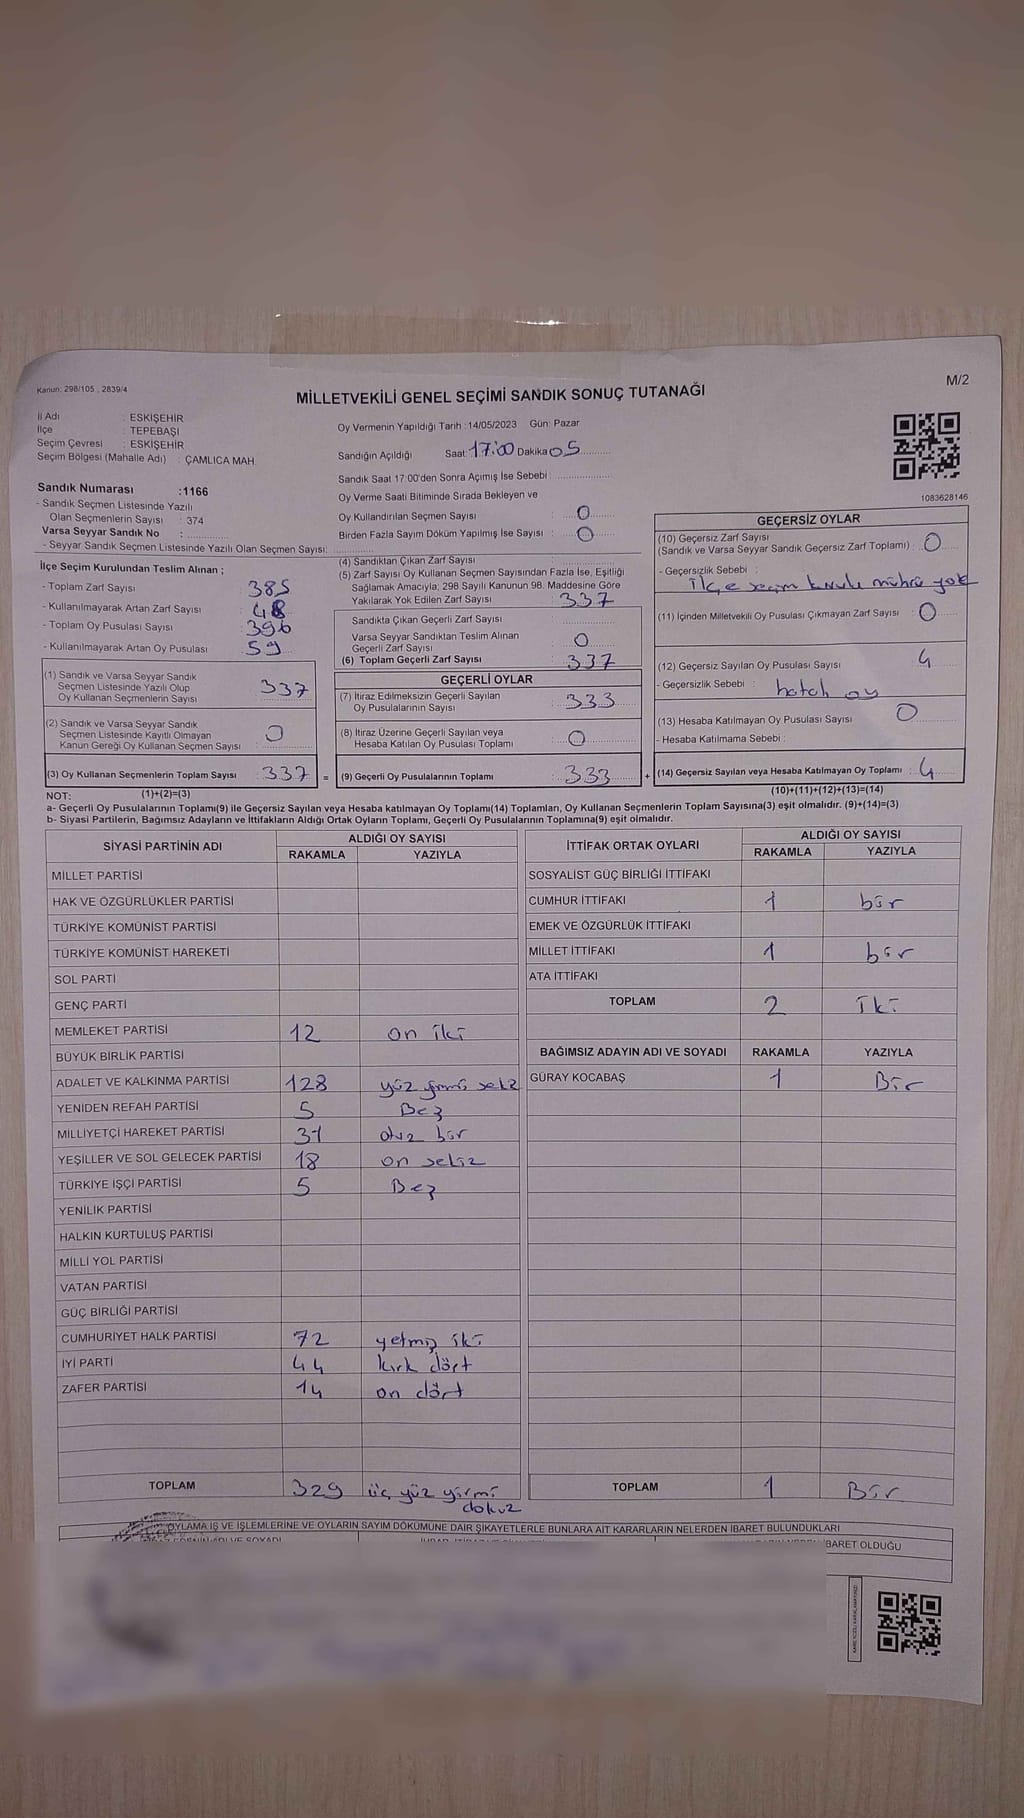 Kanun: 298/105 , 2839/4
M/2
MİLLETVEKİLİ GENEL SEÇİMİ SANDIK SONUÇ TUTANAĞI
İl Adı : ESKİŞEHİR
İlçe : TEPEBAŞI
Seçim Çevresi : ESKİŞEHİR
Seçim Bölgesi (Mahalle Adı) : ÇAMLICA MAH.
Sandık Numarası :1166
- Sandık Seçmen Listesinde Yazılı
Olan Seçmenlerin Sayısı : 374
Varsa Seyyar Sandık No :
- Seyyar Sandık Seçmen Listesinde Yazılı Olan Seçmen Sayısı:
Oy Vermenin Yapıldığı Tarih :14/05/2023 Gün: Pazar
Sandığın Açıldığı Saat: 17:00 Dakika 05
Sandık Saat 17:00'den Sonra Açımış İse Sebebi :
Oy Verme Saati Bitiminde Sırada Bekleyen ve
Oy Kullandırılan Seçmen Sayısı : 0
Birden Fazla Sayım Döküm Yapılmış İse Sayısı : 0
1083628146
İlçe Seçim Kurulundan Teslim Alınan ;
- Toplam Zarf Sayısı : 385
- Kullanılmayarak Artan Zarf Sayısı : 48
- Toplam Oy Pusulası Sayısı : 396
- Kullanılmayarak Artan Oy Pusulası : 59
(1) Sandık ve Varsa Seyyar Sandık
Seçmen Listesinde Yazılı Olup
Oy Kullanan Seçmenlerin Sayısı : 337
(2) Sandık ve Varsa Seyyar Sandık
Seçmen Listesinde Kayıtlı Olmayan
Kanun Gereği Oy Kullanan Seçmen Sayısı : 0
(3) Oy Kullanan Seçmenlerin Toplam Sayısı : 337 =
(4) Sandıktan Çıkan Zarf Sayısı :
(5) Zarf Sayısı Oy Kullanan Seçmen Sayısından Fazla İse, Eşitliği
Sağlamak Amacıyla, 298 Sayılı Kanunun 98. Maddesine Göre
Yakılarak Yok Edilen Zarf Sayısı : 337
Sandıkta Çıkan Geçerli Zarf Sayısı :
Varsa Seyyar Sandıktan Teslim Alınan
Geçerli Zarf Sayısı : 0
(6) Toplam Geçerli Zarf Sayısı : 337
GEÇERLİ OYLAR
(7) İtiraz Edilmeksizin Geçerli Sayılan
Oy Pusulalarının Sayısı : 333
(8) İtiraz Üzerine Geçerli Sayılan veya
Hesaba Katılan Oy Pusulaları Toplamı : 0
(9) Geçerli Oy Pusulalarının Toplamı : 333 +
GEÇERSİZ OYLAR
(10) Geçersiz Zarf Sayısı
(Sandık ve Varsa Seyyar Sandık Geçersiz Zarf Toplamı) : 0
- Geçersizlik Sebebi :
İlçe seçim kurulu mührü yok
(11) İçinden Milletvekili Oy Pusulası Çıkmayan Zarf Sayısı : 0
(12) Geçersiz Sayılan Oy Pusulası Sayısı : 4
- Geçersizlik Sebebi : hatalı oy
(13) Hesaba Katılmayan Oy Pusulası Sayısı : 0
- Hesaba Katılmama Sebebi :
(14) Geçersiz Sayılan veya Hesaba Katılmayan Oy Toplamı : 4
NOT: (1)+(2)=(3)
(10)+(11)+(12)+(13)=(14)
a- Geçerli Oy Pusulalarının Toplamı(9) ile Geçersiz Sayılan veya Hesaba katılmayan Oy Toplamı(14) Toplamları, Oy Kullanan Seçmenlerin Toplam Sayısına(3) eşit olmalıdır. (9)+(14)=(3)
b- Siyasi Partilerin, Bağımsız Adayların ve İttifakların Aldığı Ortak Oyların Toplamı, Geçerli Oy Pusulalarının Toplamına(9) eşit olmalıdır.
SİYASİ PARTİNİN ADI ALDIĞI OY SAYISI
RAKAMLA YAZIYLA
MİLLET PARTİSİ
HAK VE ÖZGÜRLÜKLER PARTİSİ
TÜRKİYE KOMÜNİST PARTİSİ
TÜRKİYE KOMÜNİST HAREKETİ
SOL PARTİ
GENÇ PARTİ
MEMLEKET PARTİSİ 12 on iki
BÜYÜK BİRLİK PARTİSİ
ADALET VE KALKINMA PARTİSİ 128 yüz yirmi sekiz
YENİDEN REFAH PARTİSİ 5 Beş
MİLLİYETÇİ HAREKET PARTİSİ 31 otuz bir
YEŞİLLER VE SOL GELECEK PARTİSİ 18 on sekiz
TÜRKİYE İŞÇİ PARTİSİ 5 Beş
YENİLİK PARTİSİ
HALKIN KURTULUŞ PARTİSİ
MİLLİ YOL PARTİSİ
VATAN PARTİSİ
GÜÇ BİRLİĞİ PARTİSİ
CUMHURİYET HALK PARTİSİ 72 yetmiş iki
İYİ PARTİ 44 kırk dört
ZAFER PARTİSİ 14 on dört
TOPLAM 329 üç yüz yirmi
dokuz
İTTİFAK ORTAK OYLARI ALDIĞI OY SAYISI
RAKAMLA YAZIYLA
SOSYALİST GÜÇ BİRLİĞİ İTTİFAKI
CUMHUR İTTİFAKI 1 bir
EMEK VE ÖZGÜRLÜK İTTİFAKI
MİLLET İTTİFAKI 1 bir
ATA İTTİFAKI
TOPLAM 2 İki
BAĞIMSIZ ADAYIN ADI VE SOYADI RAKAMLA YAZIYLA
GÜRAY KOCABAŞ 1 Bir
TOPLAM 1 Bir
OYLAMA İŞ VE İŞLEMLERİNE VE OYLARIN SAYIM DÖKÜMÜNE DAİR ŞİKAYETLERLE BUNLARA AİT KARARLARIN NELERDEN İBARET BULUNDUKLARI
BARET OLDUĞU